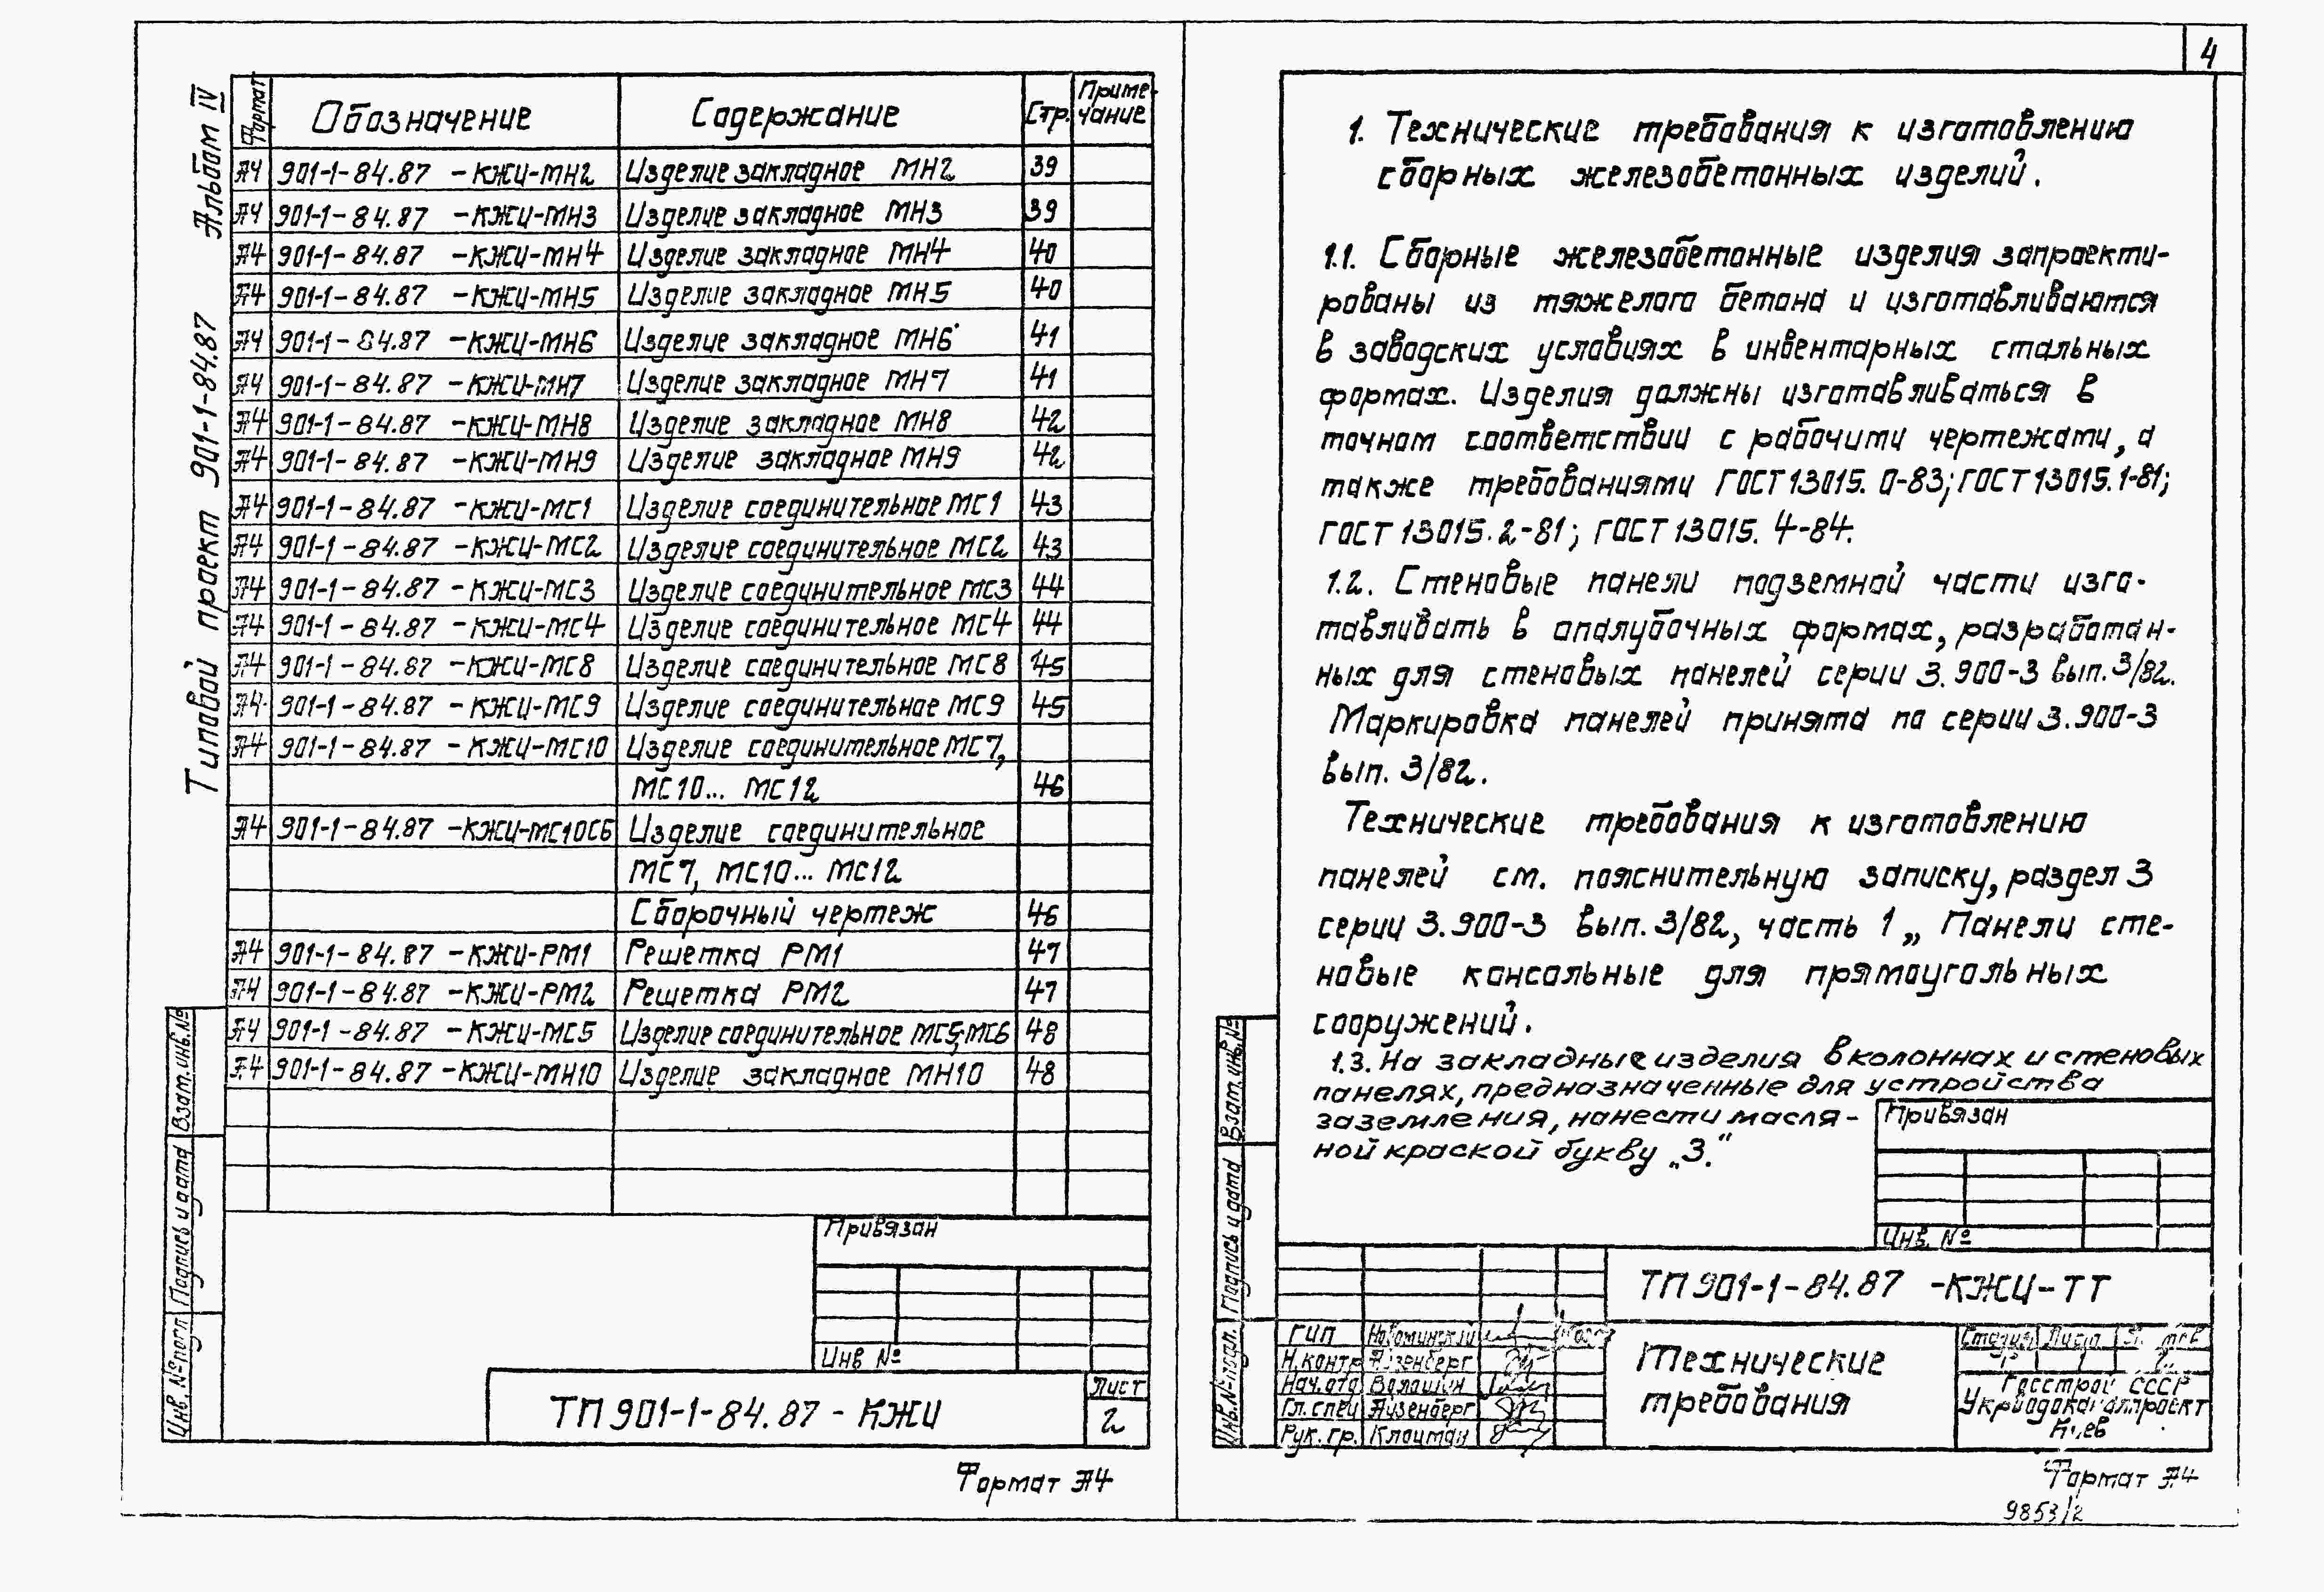 Альбом IV
Типовой проект 901-1-84.87
Формат Обозначение Содержание Стр. Приме-чание
А4 901-1-84.87 -КЖИ-МН2 Изделие закладное МН2 39
А4 901-1-84.87 -КЖИ-МН3 Изделие закладное МН3 39
А4 901-1-84.87 -КЖИ-МН4 Изделие закладное МН4 40
А4 901-1-84.87 -КЖИ-МН5 Изделие закладное МН5 40
А4 901-1-84.87 -КЖИ-МН6 Изделие закладное МН6 41
А4 901-1-84.87 -КЖИ-МН7 Изделие закладное МН7 41
А4 901-1-84.87 -КЖИ-МН8 Изделие закладное МН8 42
А4 901-1-84.87 -КЖИ-МН9 Изделие закладное МН9 42
А4 901-1-84.87 -КЖИ-МС1 Изделие соединительное МС1 43
А4 901-1-84.87 -КЖИ-МС2 Изделие соединительное МС2 43
А4 901-1-84.87 -КЖИ-МС3 Изделие соединительное МС3 44
А4 901-1-84.87 -КЖИ-МС4 Изделие соединительное МС4 44
А4 901-1-84.87 -КЖИ-МС8 Изделие соединительное МС8 45
А4 901-1-84.87 -КЖИ-МС9 Изделие соединительное МС9 45
А4 901-1-84.87 -КЖИ-МС10 Изделие соединительное МС7,
МС10... МС12 46
А4 901-1-84.87 -КЖИ-МС10СБ Изделие соединительное
МС7, МС10... МС12
Сборочный чертеж 46
А4 901-1-84.87 -КЖИ-РМ1 Решетка РМ1 47
А4 901-1-84.87 -КЖИ-РМ2 Решетка РМ2 47
А4 901-1-84.87 -КЖИ-МС5 Изделие соединительное МС5;МС6 48
А4 901-1-84.87 -КЖИ-МН10 Изделие закладное МН10 48
Взам.инв.№
Подпись и дата
Инв.№подл
Привязан
Инв №
ТП 901-1-84.87 - КЖИ
Лист
2
Формат А4
4
1. Технические требования к изготовлению
сборных железобетонных изделий.
1.1. Сборные железобетонные изделия запроекти-
рованы из тяжелого бетона и изготавливаются
в заводских условиях в инвентарных стальных
формах. Изделия должны изготавливаться в
точном соответствии с рабочими чертежами, а
также требованиями ГОСТ 13015.0-83; ГОСТ 13015.1-81;
ГОСТ 13015.2-81; ГОСТ 13015.4-84.
1.2. Стеновые панели подземной части изго-
тавливать в опалубочных формах, разработан-
ных для стеновых панелей серии 3.900-3 вып.3/82.
Маркировка панелей принята по серии 3.900-3
вып. 3/82.
Технические требования к изготовлению
панелей см. пояснительную записку, раздел 3
серии 3.900-3 вып. 3/82, часть 1 „ Панели сте-
новые консольные для прямоугольных
сооружений.
1.3. На закладные изделия в колоннах и стеновых
панелях, предназначенные для устройства
заземления, нанести масля-
ной краской букву „З."
Привязан
Инв. №
Взам.инв.№
Подпись и дата
Инв.№подл.
ТП 901-1-84.87 -КЖИ-ТТ
ГИП Новоминский
Н.контр Айзенберг
Нач.отд Волошин
Гл.спец Айзенберг
Рук. гр. Клоцман
Технические
требования
Стадия Лист
Госстрой СССР
Укрводоканалпроект
Киев
Формат А4
9853/2